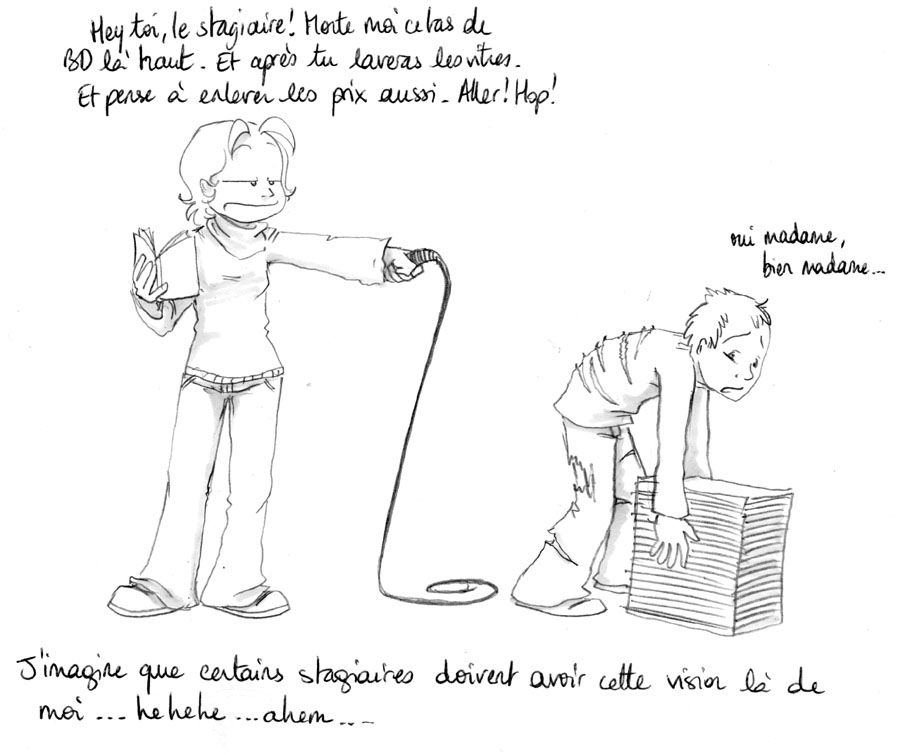 Hey toi, le stagiaire! Monte moi ce tas de
BD là haut. Et après tu laveras les vitres.
Et pense à enlever les prix aussi. Aller! Hop!
oui madame,
bien madame...
J'imagine que certains stagiaires doivent avoir cette vision là de
moi... hehehe...ahem...